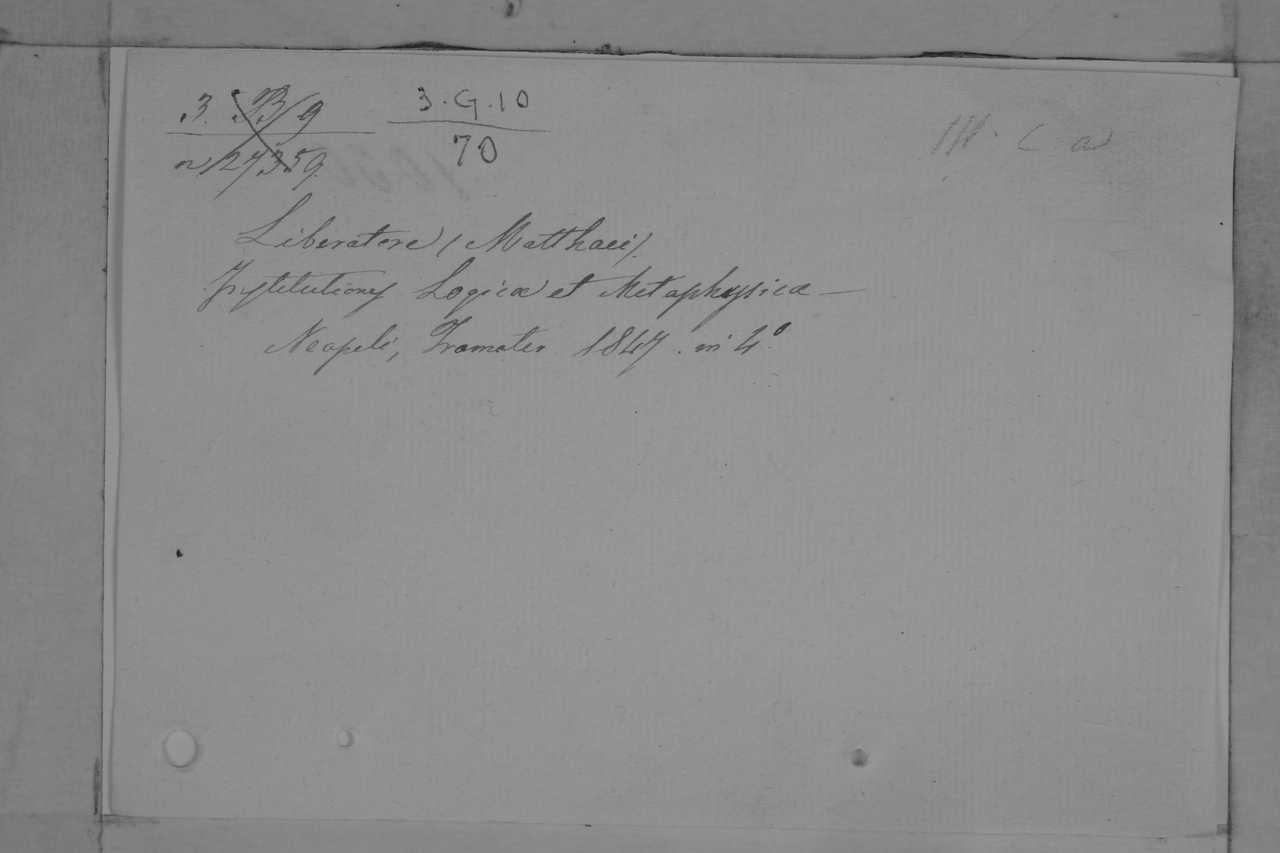 3. B/9
3.G.10
n 27359
70
III. C a
Liberatore (Matthaei).
Institutiones Logicæ et Metaphysicæ —
Neapoli, Tramater 1847. in 4.º